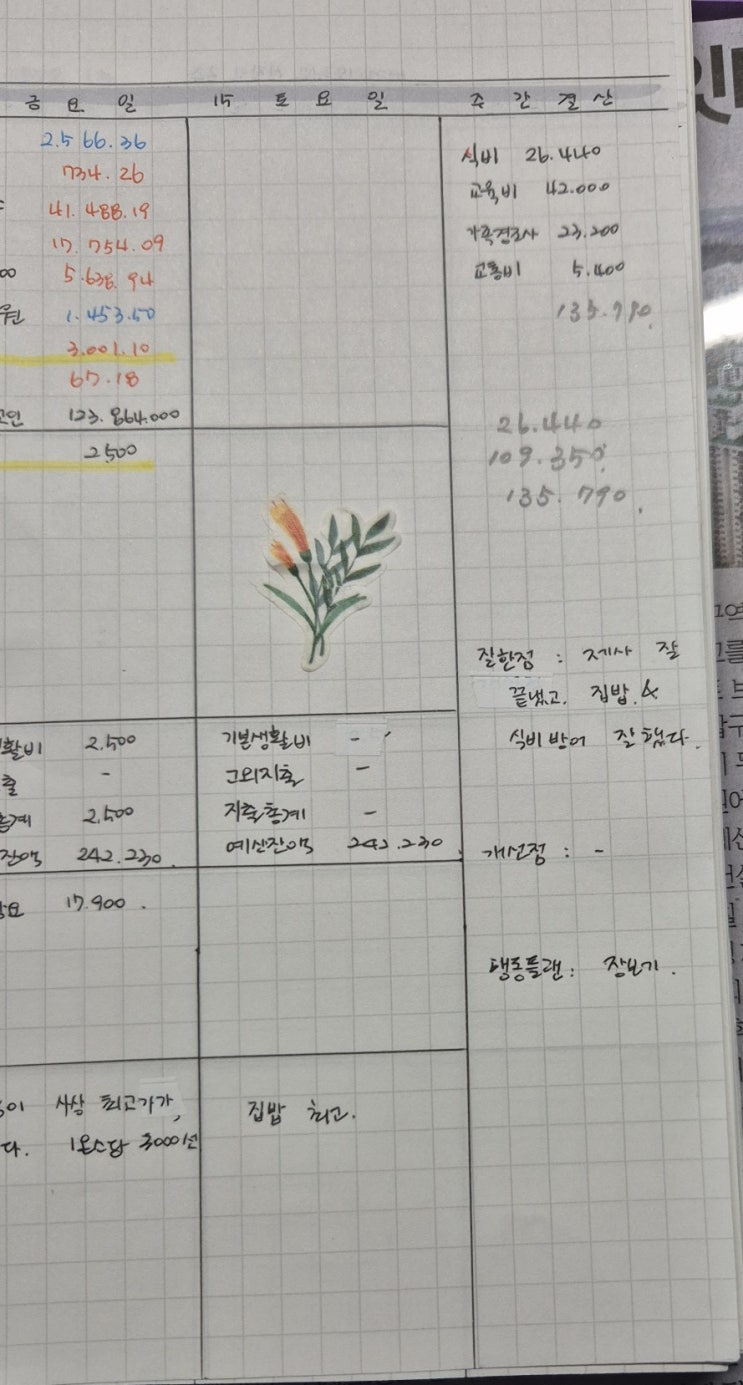 금요일
2.566.36
734.26
41.488.19
17.754.09
5.638.94
1.453.50
3.001.10
67.18
123.864.000
2.500
활비 2.500
출 -
2.500
잔액 242.230.
17.900.
사상 최고가가,
다. 1온스당 3000선
15 토요일
기본생활비 -
그외지출 -
지출총계 -
예산잔액 242.230.
집밥 최고.
주간결산
식비 26.440
교육비 42.000
가족경조사 23.200
교통비 5.400
135.790.
26.440
109.350.
135.790.
잘한점 : 제사 잘
끝냈고. 집밥. &
식비 방어 잘했다.
개선점 : -
행동플랜 : 장보기.